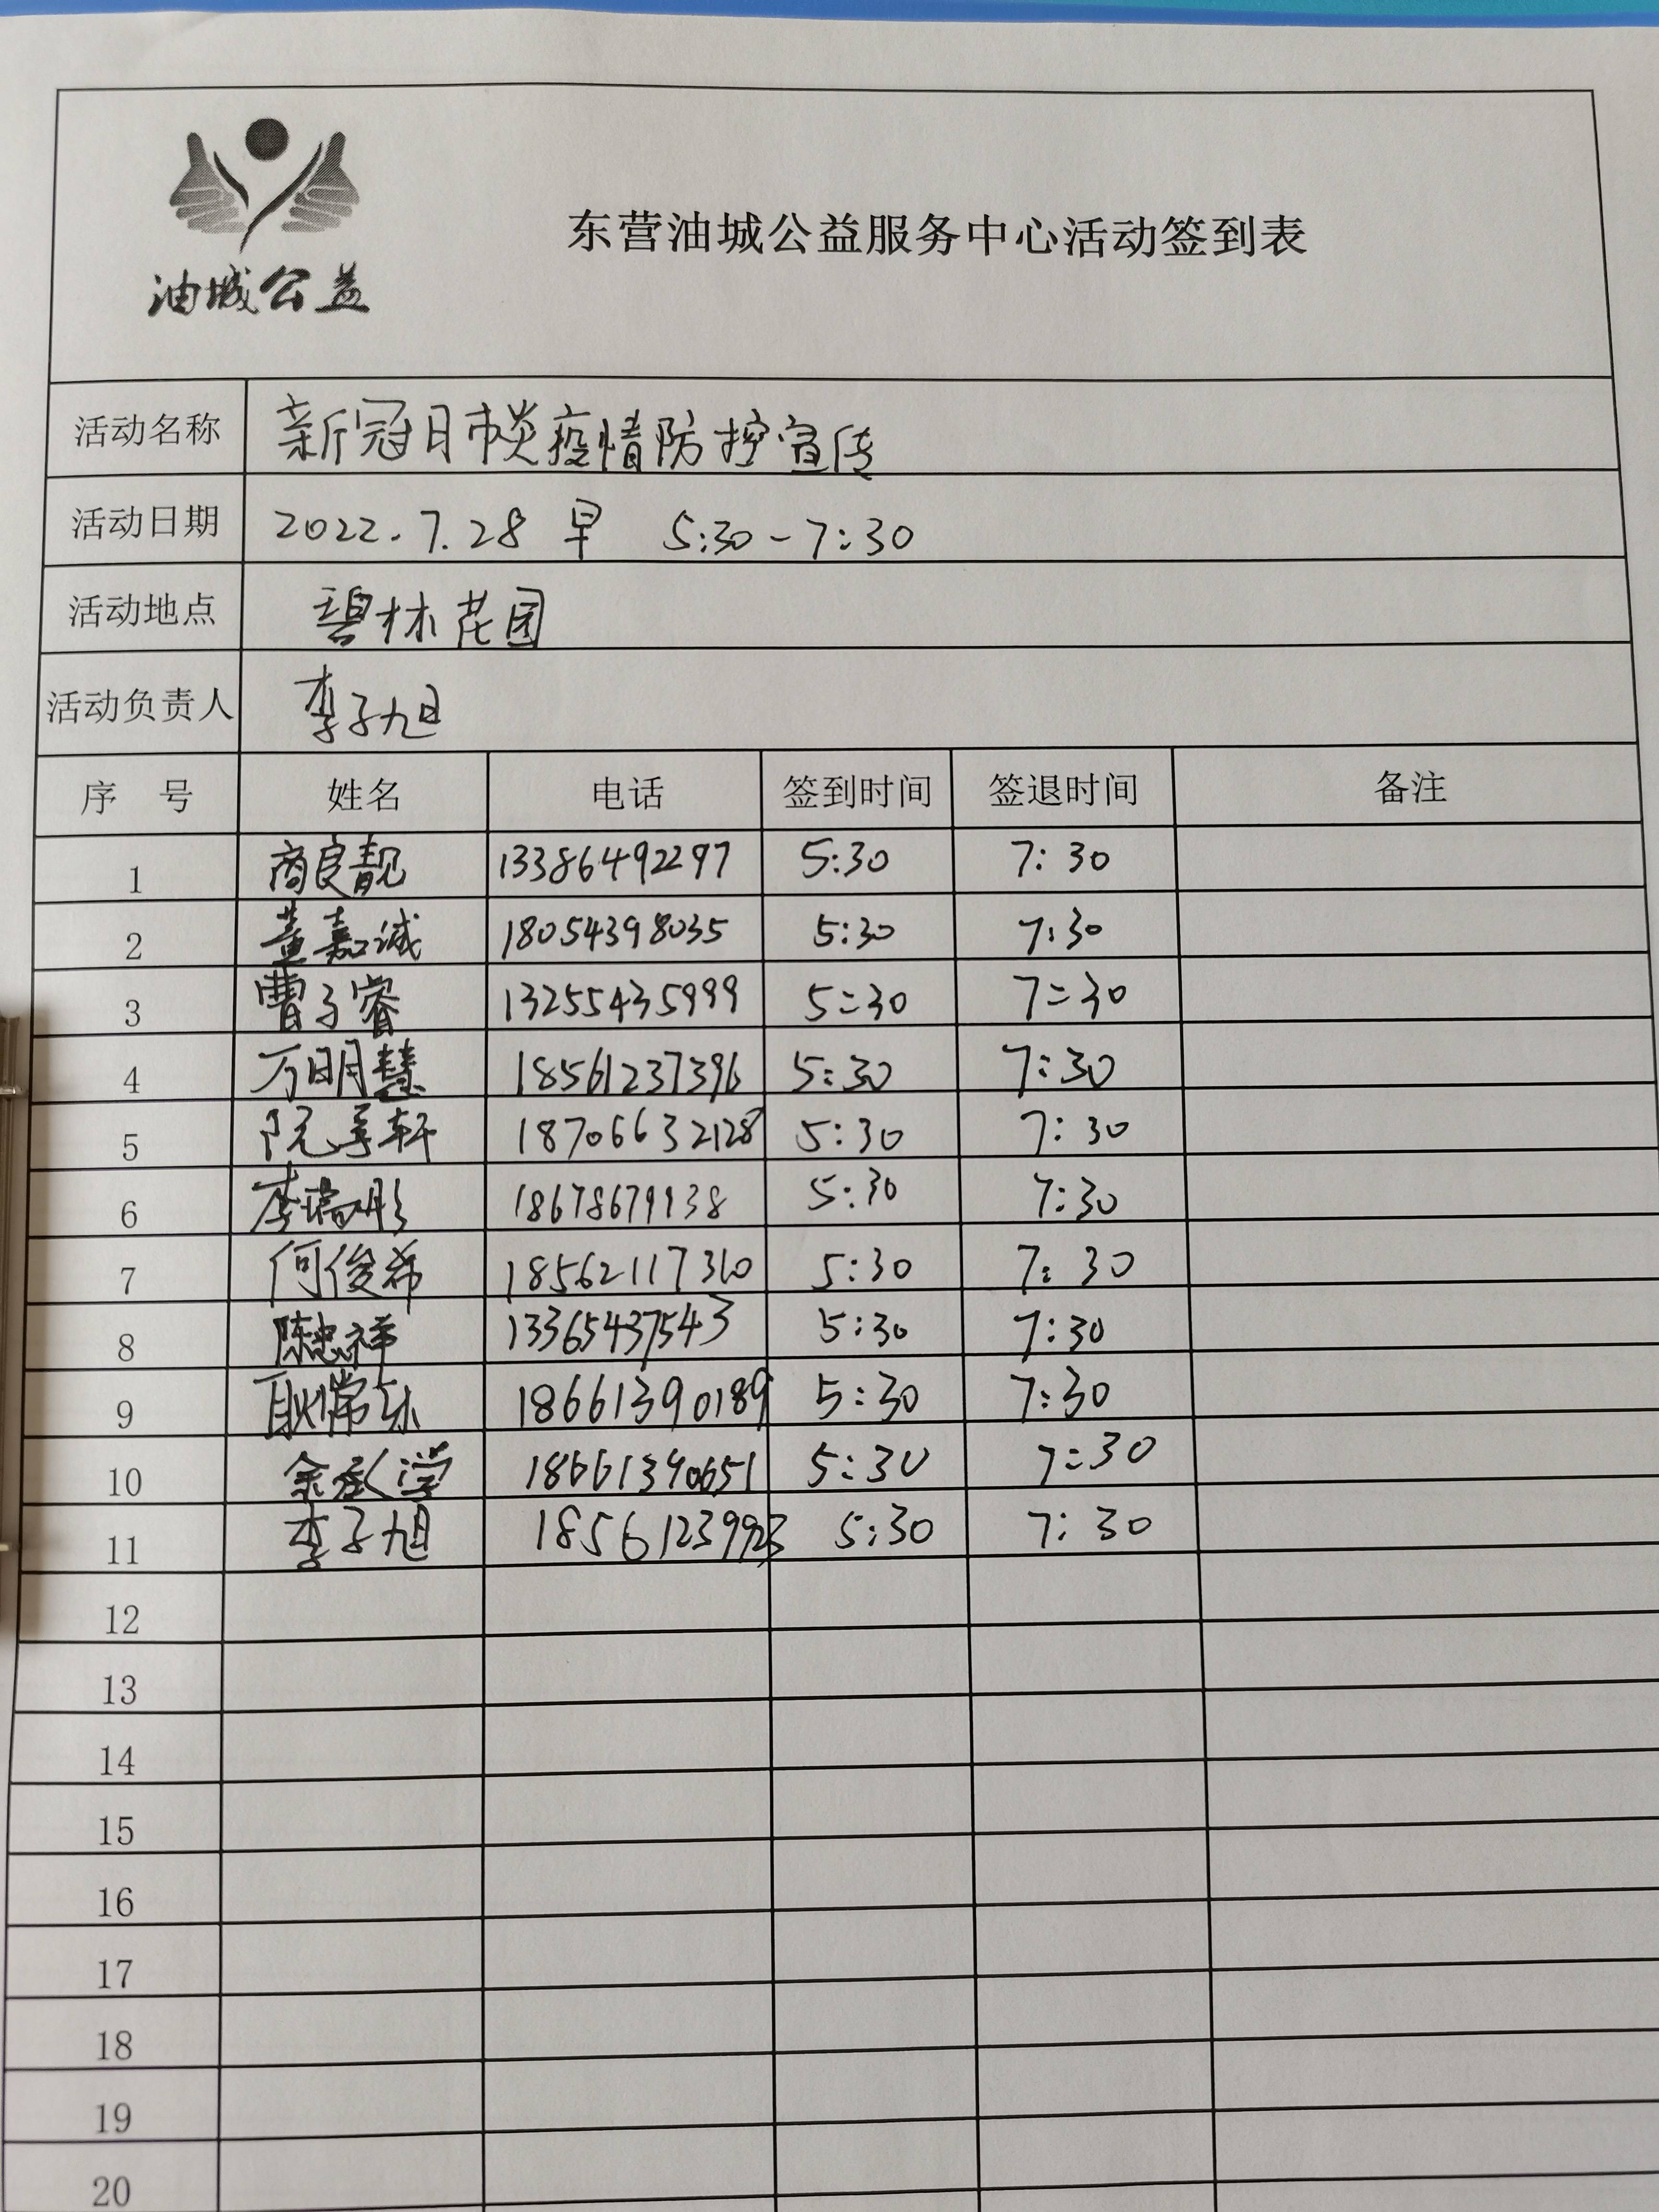 油城公益
东营油城公益服务中心活动签到表
活动名称 新冠肺炎疫情防控宣传
活动日期 2022.7.28 早 5:30-7:30
活动地点 碧林花园
活动负责人 李子旭
序 号 姓名 电话 签到时间 签退时间 备注
1 商良靓 13386492297 5:30 7:30
2 董嘉诚 18054398035 5:30 7:30
3 曹子睿 13255435999 5:30 7:30
4 万明慧 18561237396 5:30 7:30
5 阮孝轩 18706632128 5:30 7:30
6 李瑞彤 18678679938 5:30 7:30
7 何俊希 18562117310 5:30 7:30
8 陈忠祥 13365437543 5:30 7:30
9 耿常乐 18661390189 5:30 7:30
10 余承学 18661390651 5:30 7:30
11 李子旭 5:30 7:30
12
13
14
15
16
17
18
19
20